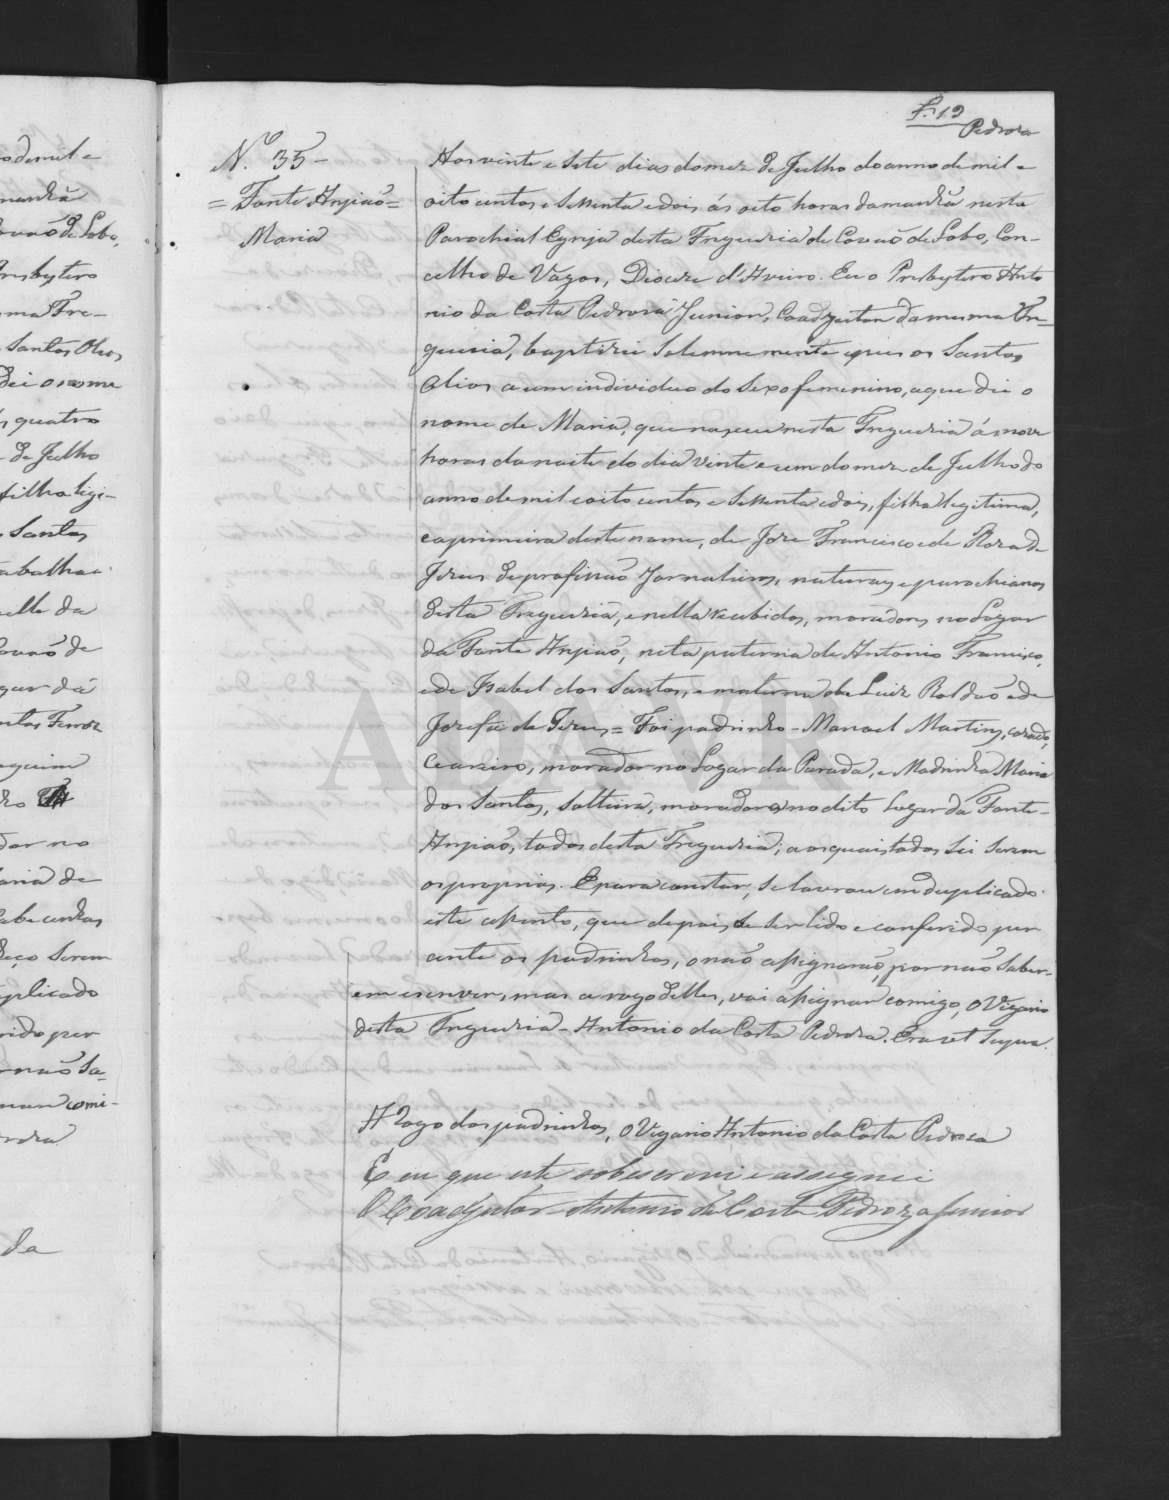 f. 19
Pedroza
N.º 35 -
= Fonte Anjiaõ =
Maria
Aos vinte e sete dias do mez de Julho do anno de mil e
oito centos e sessenta e dois, ás oito horas da manhã nesta
Parochial Egreja desta Freguezia de Covaõ de Lobo, Con-
celho de Vagos, Dioceze d'Aveiro. Eu o Presbytero Anto
nio da Costa Pedroza Junior, Coadjuctor da mesma Fre-
guezia, baptizei solemnemente e puz os Santos
Olios a um individuo do sexo femenino, a que dei o
nome de Maria, que nasceu nesta Freguezia ás nove
horas da noite do dia vinte e um do mez de Julho do
anno de mil e oito centos e sessenta e dois, filha legitima,
e a primeira deste nome, de Joze Francisco e de Roza de
Jezus de profissaõ Jornaleiros, naturaes e parochianos
desta Freguezia, e nella recebidos, moradores no Logar
da Fonte Anjiaõ, neta paterna de Antonio Francisco,
e de Isabel dos Santos, e materna de Luiz Roldaõ e de
Jozefa de Jezus = Foi padrinho - Manoel Martins, cazado,
Ceareiro, morador no Logar da Parada, e Madrinha Maria
dos Santos, solteira, moradora no dito Logar da Fonte-
Anjiaõ, todos desta Freguezia, aos quais todos sei serem
os proprios. E para constar, se lavrou em duplicado
este assento, que depois de ser lido e conferido per
ante os padrinhos, o naõ assignaraõ, por naõ saber-
em escrever, mas a rogo delles, vai assignar comigo, o Vigario
desta Freguezia - Antonio da Costa Pedroza. Era ut supra.
A rogo dos padrinhos, o Vigario Antonio da Costa Pedroza
E eu que este sobescrevi e assignei
O Coadjutor Antonio da Costa Pedroza Junior
ADAVR